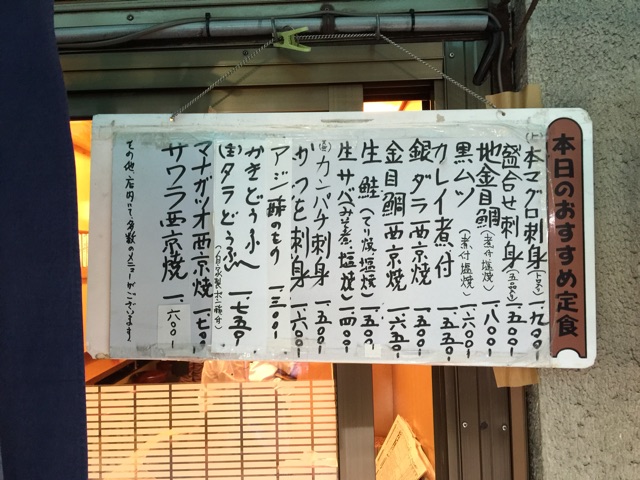 本日のおすすめ定食
(上)本マグロ刺身 一、九〇〇
盛合せ刺身 一、五〇〇
地金目鯛(煮付 塩焼) 一、八〇〇
黒ムツ(煮付 塩焼) 一、六〇〇
カレイ煮付 一、五五〇
銀ダラ西京焼 一、五〇〇
金目鯛西京焼 一、六五〇
生鮭(てり焼 塩焼) 一、五五〇
生サバ(みそ煮 塩焼) 一、四〇〇
カンパチ刺身 一、五〇〇
かつを刺身 一、六〇〇
アジ酢のもの 一、三〇〇
かきどうふ
(生)タラどうふ 一、七五〇
マナガツオ西京焼 一、七〇〇
サワラ西京焼 一、六〇〇
その他、店内にて多数のメニューがございます